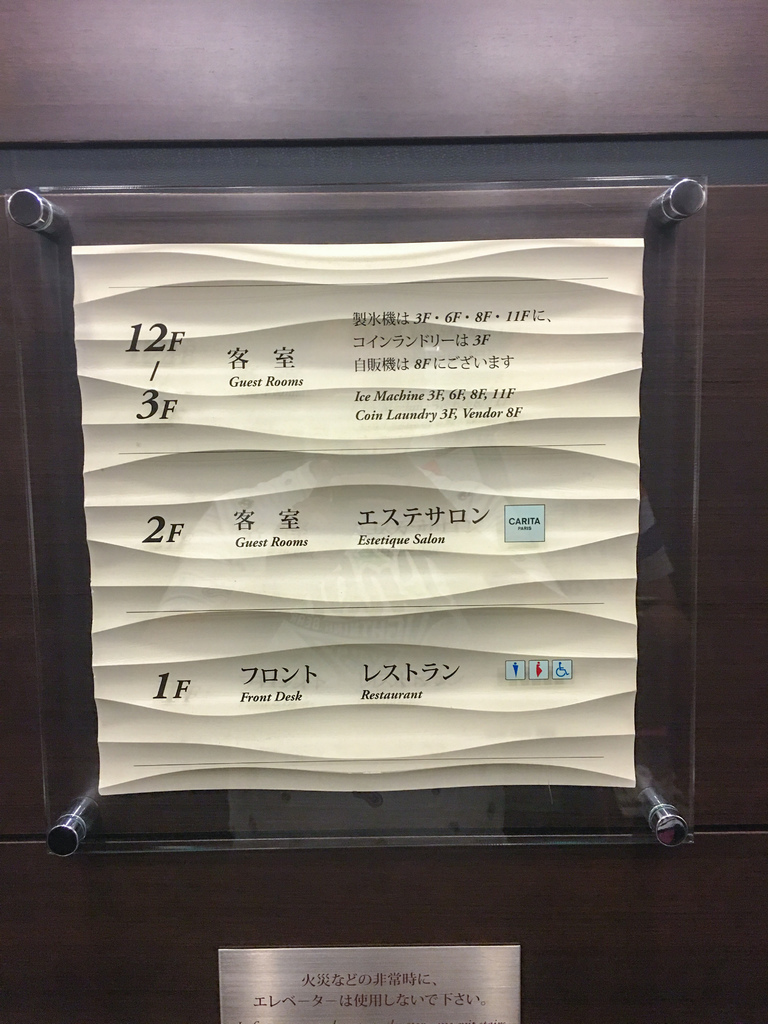 12F
/
3F
客 室
Guest Rooms
製氷機は 3F・6F・8F・11Fに、
コインランドリーは 3F
自販機は 8Fにございます
Ice Machine 3F, 6F, 8F, 11F
Coin Laundry 3F, Vendor 8F
2F
客 室
Guest Rooms
エステサロン
Estetique Salon
CARITA
PARIS
1F
フロント
Front Desk
レストラン
Restaurant
火災などの非常時に、
エレベーターは使用しないで下さい。